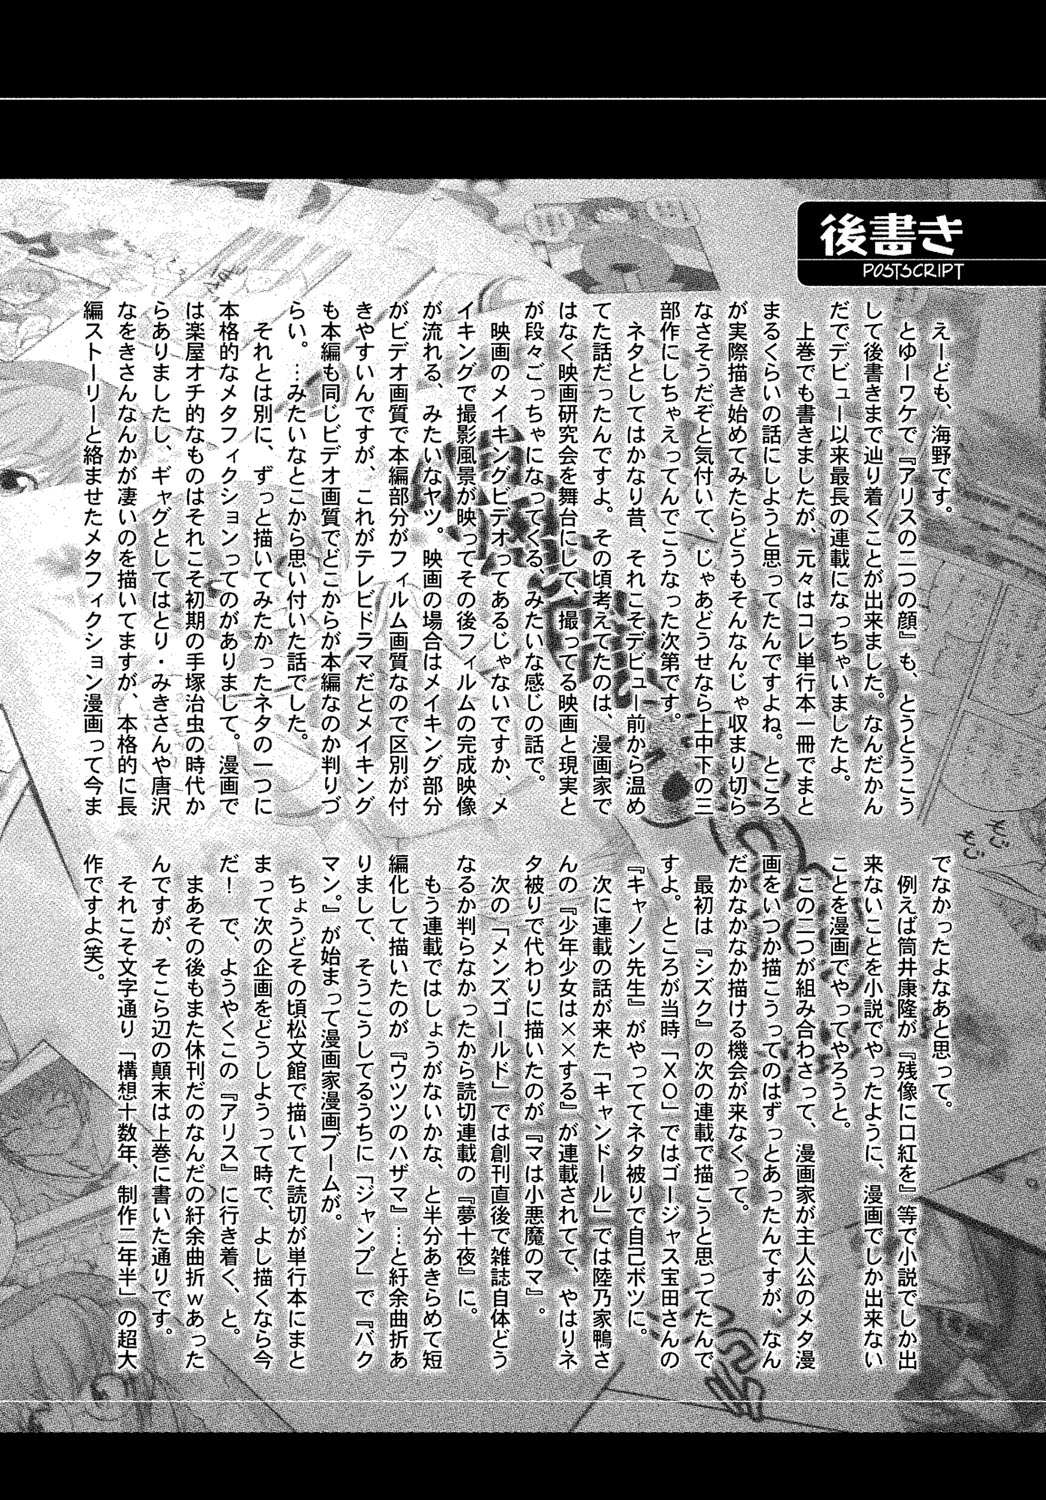 後書き
POSTSCRIPT
えーども、海野です。
とゆーワケで『アリスの二つの顔』も、とうとうこう
して後書きまで辿り着くことが出来ました。なんだかん
だでデビュー以来最長の連載になっちゃいましたよ。
上巻でも書きましたが、元々はコレ単行本一冊でまと
まるくらいの話にしようと思ってたんですよね。ところ
が実際描き始めてみたらどうもそんなんじゃ収まり切ら
なさそうだぞと気付いて、じゃあどうせなら上中下の三
部作にしちゃえってんでこうなった次第です。
ネタとしてはかなり昔、それこそデビュー前から温め
てた話だったんですよ。その頃考えてたのは、漫画家で
はなく映画研究会を舞台にして、撮ってる映画と現実と
が段々ごっちゃになってくる、みたいな感じの話で。
映画のメイキングビデオってあるじゃないですか、メ
イキングで撮影風景が映ってその後フィルムの完成映像
が流れる、みたいなヤツ。映画の場合はメイキング部分
がビデオ画質で本編部分がフィルム画質なので区別が付
きやすいんですが、これがテレビドラマだとメイキング
も本編も同じビデオ画質でどこからが本編なのか判りづ
らい。…みたいなとこから思い付いた話でした。
それとは別に、ずっと描いてみたかったネタの一つに
本格的なメタフィクションってのがありまして。漫画で
は楽屋オチ的なものはそれこそ初期の手塚治虫の時代か
らありましたし、ギャグとしてはとり・みきさんや唐沢
なをきさんなんかが凄いのを描いてますが、本格的に長
編ストーリーと絡ませたメタフィクション漫画って今ま
でなかったよなあと思って。
例えば筒井康隆が『残像に口紅を』等で小説でしか出
来ないことを小説でやったように、漫画でしか出来ない
ことを漫画でやってやろうと。
この二つが組み合わさって、漫画家が主人公のメタ漫
画をいつか描こうってのはずっとあったんですが、なん
だかなかなか描ける機会が来なくって。
最初は『シズク』の次の連載で描こうと思ってたんで
すよ。ところが当時「XO」ではゴージャス宝田さんの
『キャノン先生』がやっててネタ被りで自己ボツに。
次に連載の話が来た「キャンドール」では陸乃家鴨さ
んの『少年少女は××する』が連載されてて、やはりネ
タ被りで代わりに描いたのが『マは小悪魔のマ』。
次の「メンズゴールド」では創刊直後で雑誌自体どう
なるか判らなかったから読切連載の『夢十夜』に。
もう連載ではしょうがないかな、と半分あきらめて短
編化して描いたのが『ウツツのハザマ』…と紆余曲折あ
りまして、そうこうしてるうちに「ジャンプ」で『バク
マン。』が始まって漫画家漫画ブームが。
ちょうどその頃松文館で描いてた読切が単行本にまと
まって次の企画をどうしようって時で、よし描くなら今
だ！　で、ようやくこの『アリス』に行き着く、と。
まあその後もまた休刊だのなんだの紆余曲折ｗあった
んですが、そこら辺の顛末は上巻に書いた通りです。
それこそ文字通り「構想十数年、制作二年半」の超大
作ですよ（笑）。
もじ
もじ